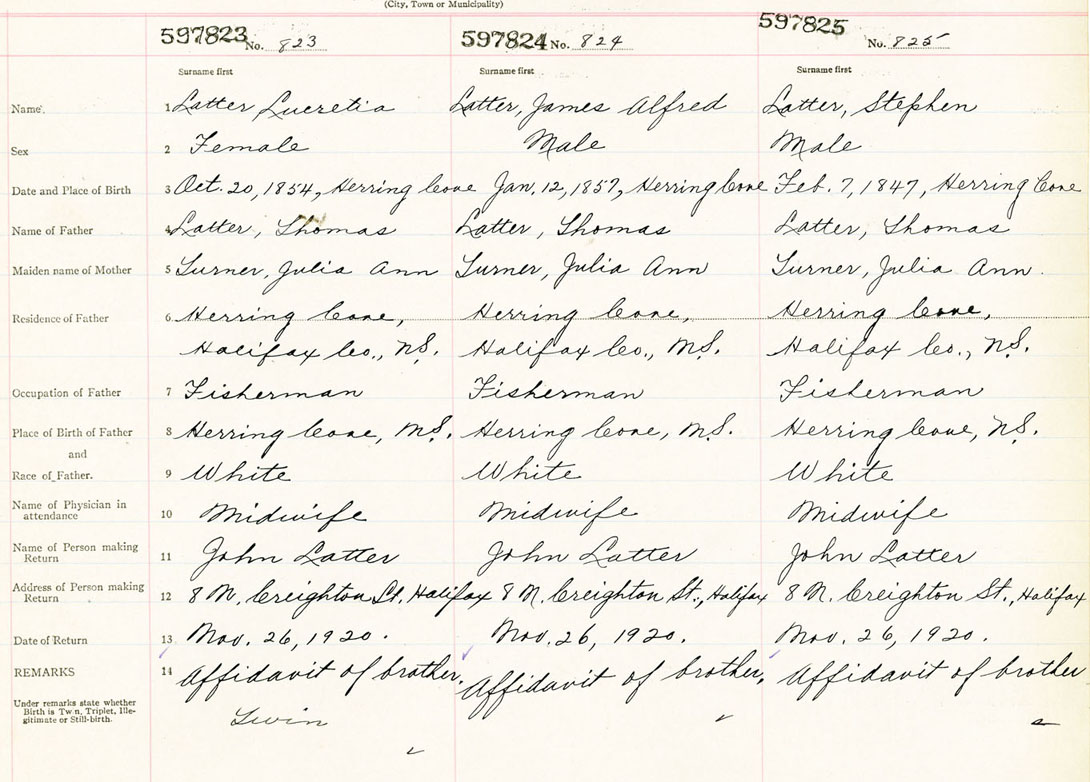 (City, Town or Municipality)
597823 No. 823 597824 No. 824 597825 No. 825
Surname first Surname first Surname first
Name. 1 Latter Lucretia Latter, James Alfred Latter, Stephen
Sex 2 Female Male Male
Date and Place of Birth 3 Oct. 20, 1854, Herring Cove Jan. 12, 1857, Herring Cove Feb. 7, 1847, Herring Cove
Name of Father 4 Latter, Thomas Latter, Thomas Latter, Thomas
Maiden name of Mother 5 Turner, Julia Ann Turner, Julia Ann Turner, Julia Ann.
Residence of Father 6 Herring Cove, Herring Cove, Herring Cove,
Halifax Co., N.S. Halifax Co., N.S. Halifax Co., N.S.
Occupation of Father 7 Fisherman Fisherman Fisherman
Place of Birth of Father 8 Herring Cove, N.S. Herring Cove, N.S. Herring Cove, N.S.
and
Race of Father. 9 White White White
Name of Physician in
attendance 10 Midwife Midwife Midwife
Name of Person making
Return 11 John Latter John Latter John Latter
Address of Person making
Return 12 8 N. Creighton St. Halifax 8 N. Creighton St., Halifax 8 N. Creighton St., Halifax
Date of Return 13 Nov. 26, 1920. Nov. 26, 1920. Nov. 26, 1920.
REMARKS 14 Affidavit of brother. Affidavit of brother. Affidavit of brother
Under remarks state whether
Birth is Twin, Triplet, Ille-
gitimate or Still-birth. Twin